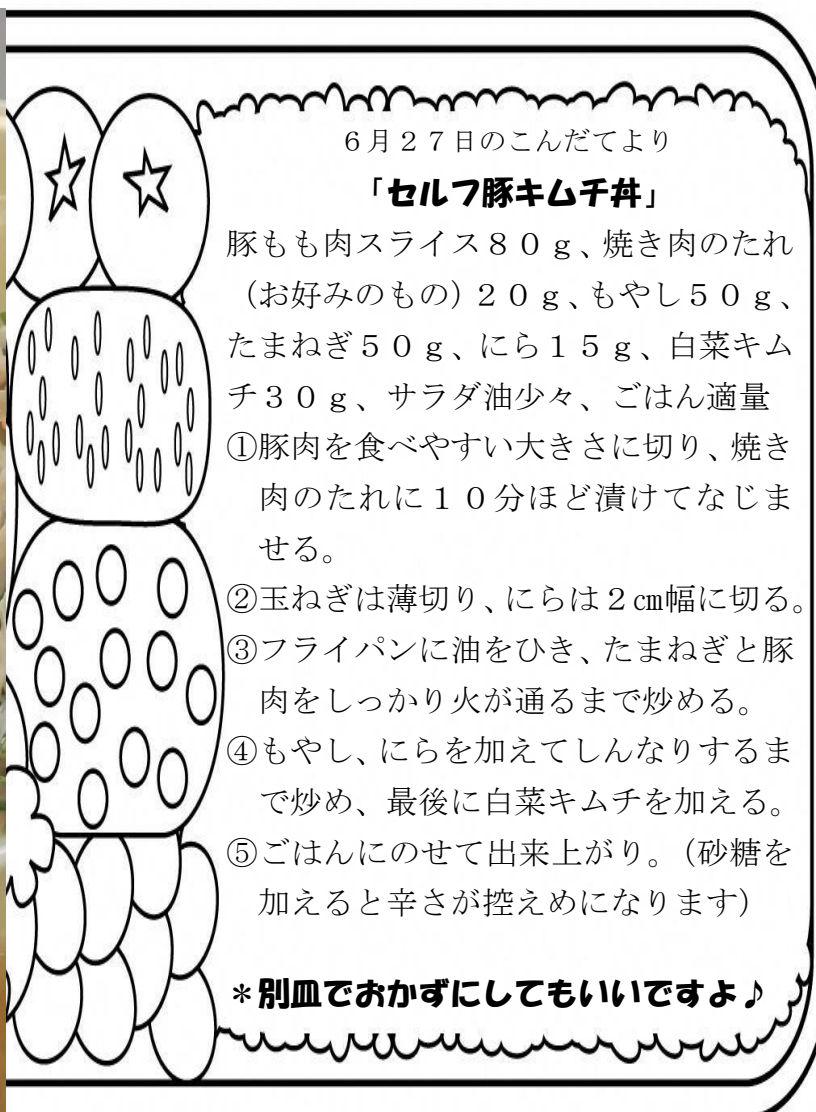 ６月２７日のこんだてより
「セルフ豚キムチ丼」
豚もも肉スライス８０ｇ、焼き肉のたれ
（お好みのもの）２０ｇ、もやし５０ｇ、
たまねぎ５０ｇ、にら１５ｇ、白菜キム
チ３０ｇ、サラダ油少々、ごはん適量
①豚肉を食べやすい大きさに切り、焼き
肉のたれに１０分ほど漬けてなじま
せる。
②玉ねぎは薄切り、にらは２㎝幅に切る。
③フライパンに油をひき、たまねぎと豚
肉をしっかり火が通るまで炒める。
④もやし、にらを加えてしんなりするま
で炒め、最後に白菜キムチを加える。
⑤ごはんにのせて出来上がり。（砂糖を
加えると辛さが控えめになります）
＊別皿でおかずにしてもいいですよ♪